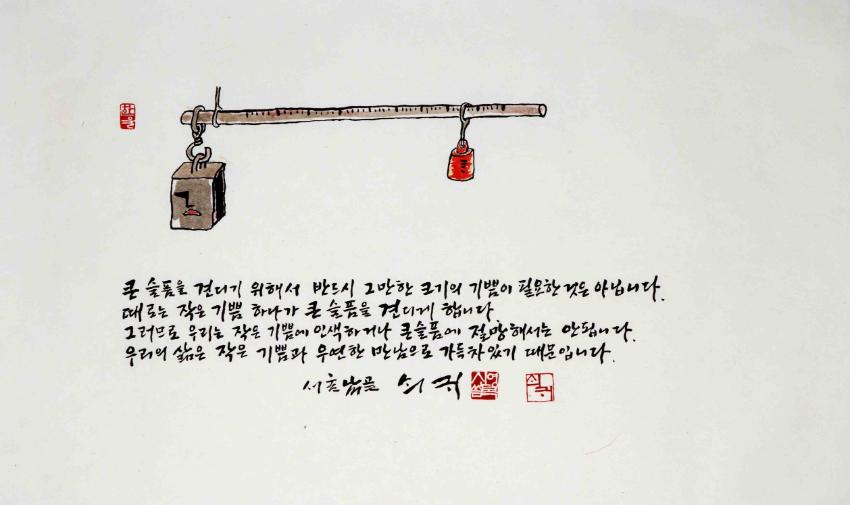 큰 슬픔을 견디기 위해서 반드시 그만한 크기의 기쁨이 필요한 것은 아닙니다.
때로는 작은 기쁨 하나가 큰 슬픔을 견디게 합니다
그러므로 우리는 작은 기쁨에 인색하거나 큰 슬픔에 절망해서는 안됩니다.
우리의 삶은 작은 기쁨과 우연한 만남으로 가득차 있기 때문입니다.
쇠귀